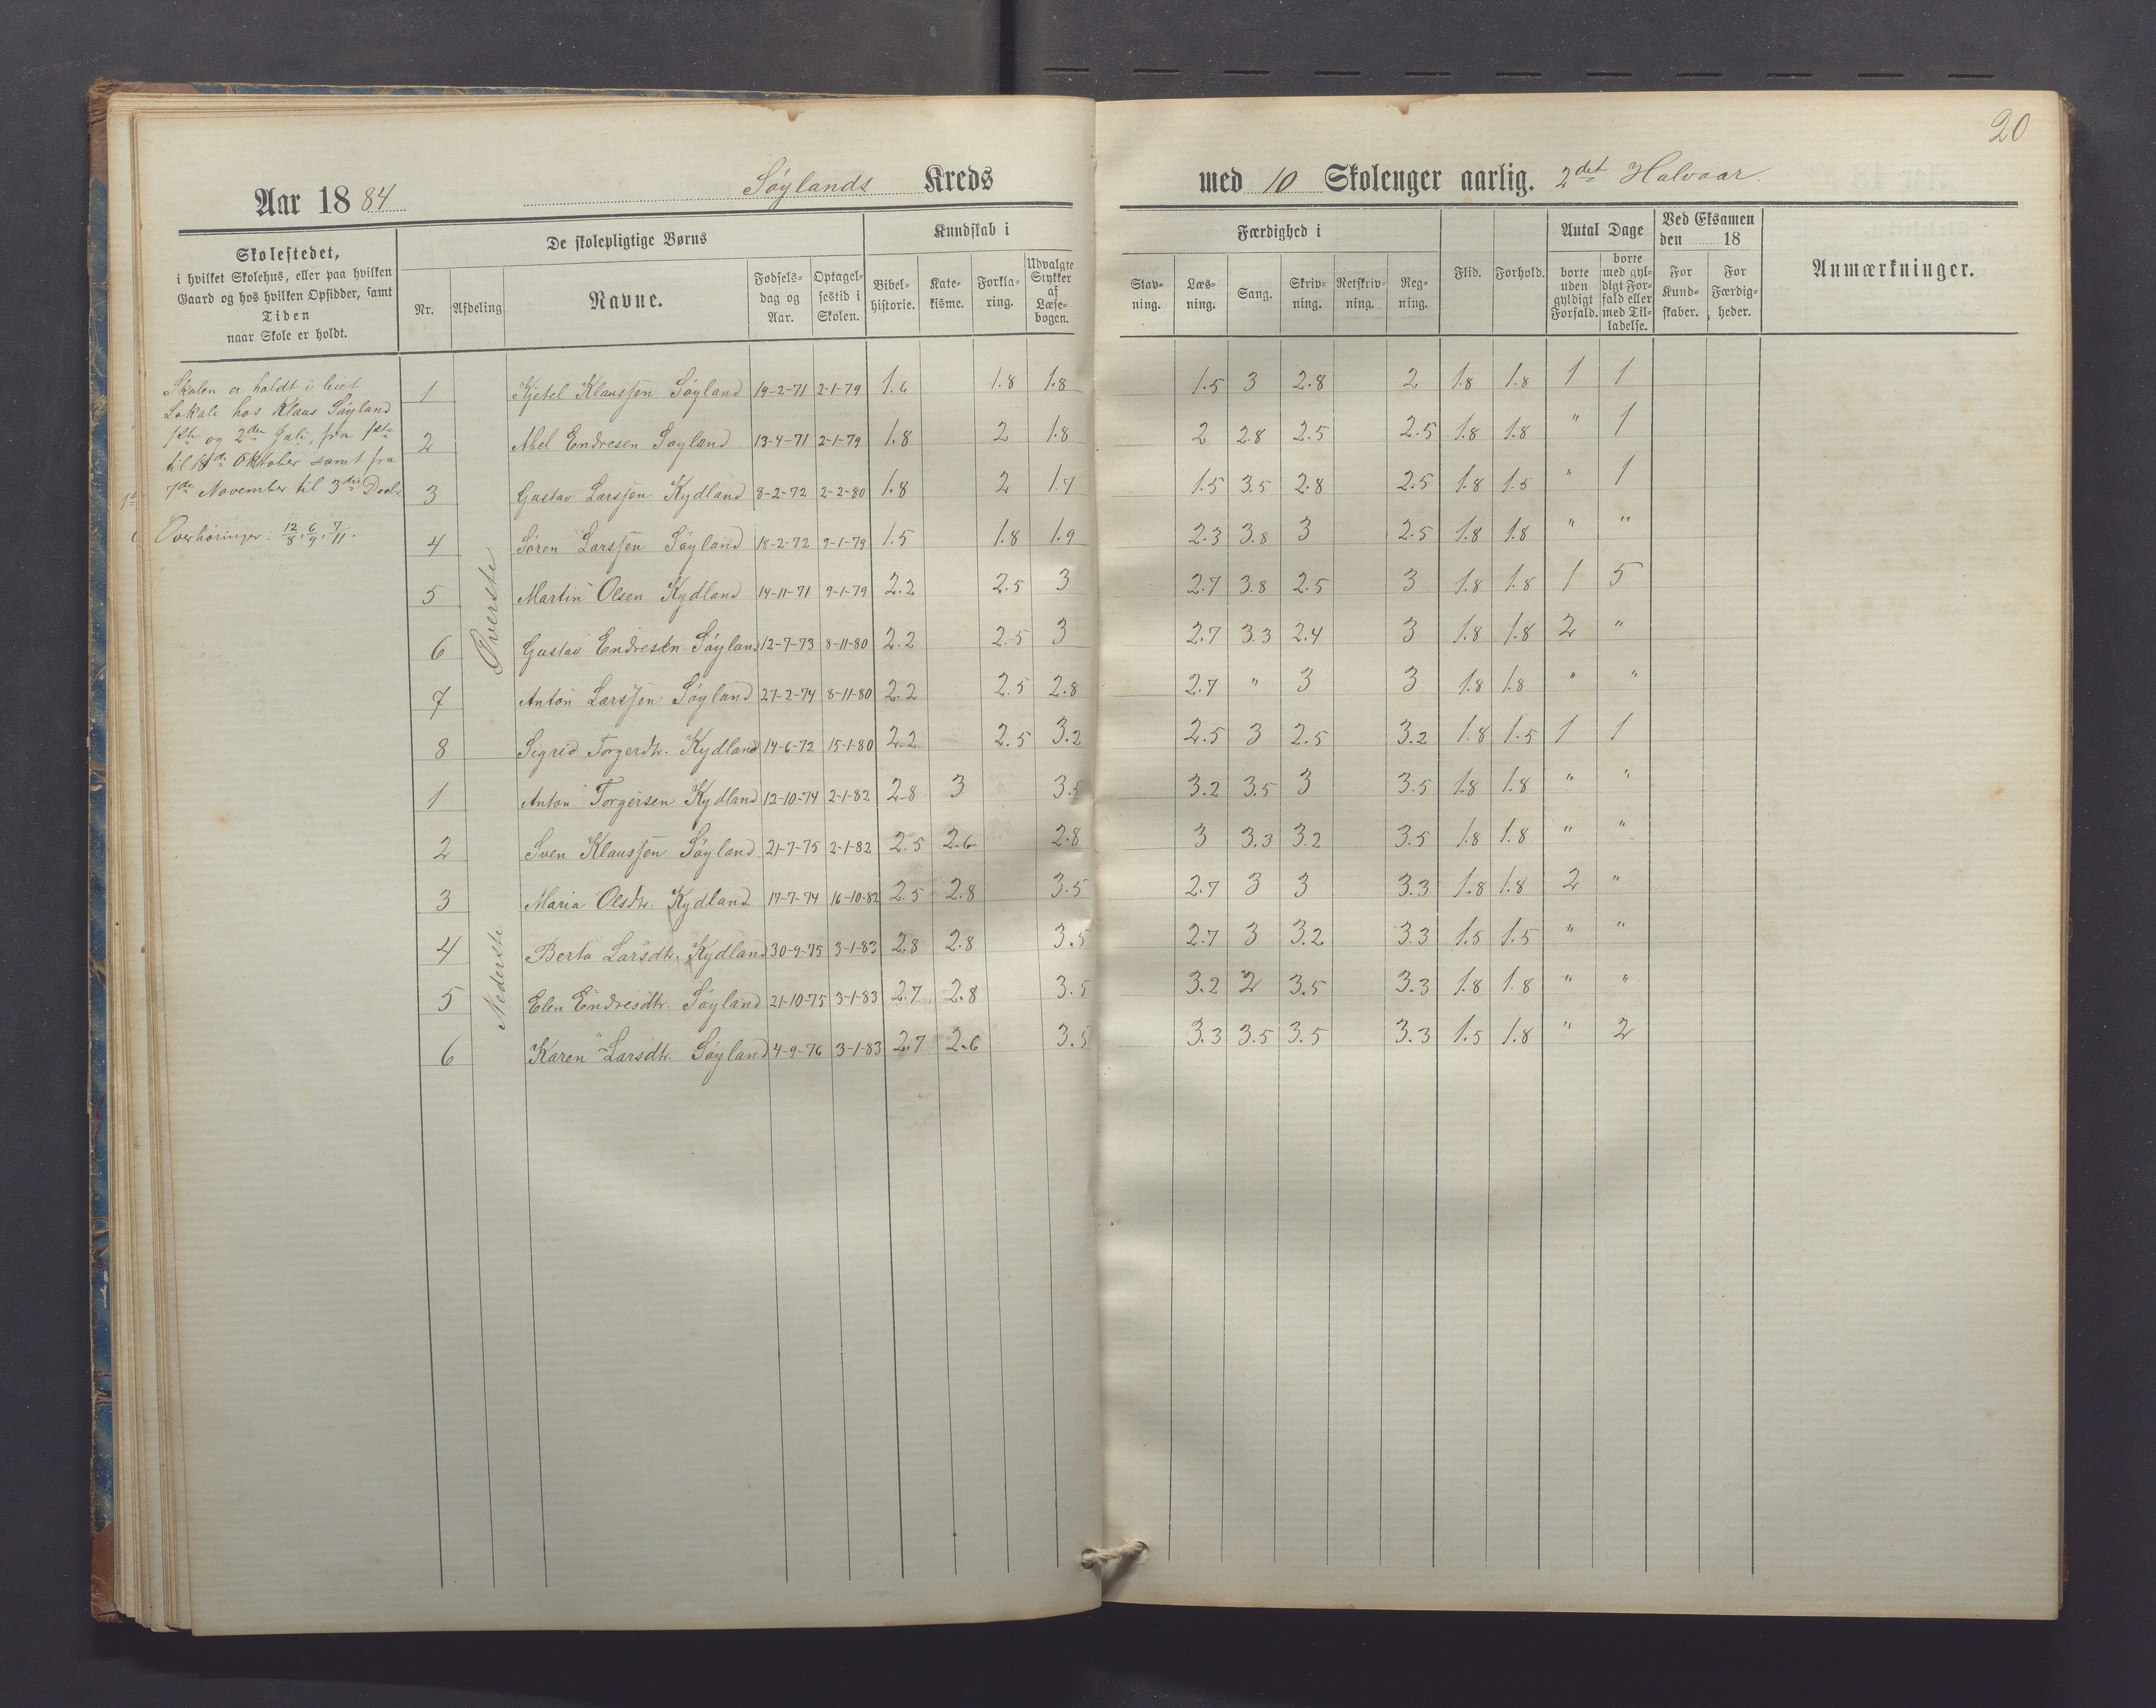 20
Aar 1884 Søylands Kreds med 10 Skoleuger aarlig. 2det Halvaar.
Skolestedet,
i hvilket Skolehus, eller paa hvilken
Gaard og hos hvilken Opsidder, samt
Tiden
naar Skole er holdt.
De skolepligtige Børns
Nr. Afdeling Navne. Fødsels-dag og Aar. Optagel-sestid i Skolen.
Kundskab i
Bibel-historie. Kate-kisme. Forkla-ring. Udvalgte Stykker af Læse-bogen.
Færdighed i
Stav-ning. Læs-ning. Sang. Skriv-ning. Retskriv-ning. Reg-ning.
Flid. Forhold.
Antal Dage
borte uden gyldigt Forfald. borte med gyl-digt For-fald eller med Til-ladelse.
Ved Eksamen
den 18
For Kund-skaber. For Færdig-heder.
Anmærkninger.
Skolen er holdt i leiet
Lokale hos Klaus Søyland
1ste og 2den Juli, fra 1ste
til 18de Oktober samt fra
7de November til 3die Decbr.
Overhøringer: 12/8, 6/9, 7/11.
Øverste
1 Kjetel Klaussen Søyland 19-2-71 2-1-79 1.6 1.8 1.8 1.5 3 2.8 2 1.8 1.8 1 1
2 Abel Endresen Søyland 13-4-71 2-1-79 1.8 2 1.8 2 2.8 2.5 2.5 1.8 1.8 " 1
3 Gustav Larssen Kydland 8-2-72 2-2-80 1.8 2 1.7 1.5 3.5 2.8 2.5 1.8 1.5 " 1
4 Søren Larssen Søyland 18-2-72 9-1-79 1.5 1.8 1.9 2.3 3.8 3 2.5 1.8 1.8 " "
5 Martin Olsen Kydland 14-11-71 9-1-79 2.2 2.5 3 2.7 3.8 2.5 3 1.8 1.8 1 5
6 Gustav Endresen Søyland 12-7-73 8-11-80 2.2 2.5 3 2.7 3.3 2.4 3 1.8 1.8 2 "
7 Anton Larssen Søyland 27-2-74 8-11-80 2.2 2.5 2.8 2.7 " 3 3 1.8 1.8 " "
8 Sigrid Torgerdtr. Kydland 14-6-72 15-1-80 2.2 2.5 3.2 2.5 3 2.5 3.2 1.8 1.5 1 1
Nederste
1 Anton Torgersen Kydland 12-10-74 2-1-82 2.8 3 3.5 3.2 3.5 3 3.5 1.8 1.8 " "
2 Sven Klaussen Søyland 21-7-75 2-1-82 2.5 2.6 2.8 3 3.3 3.2 3.5 1.8 1.8 " "
3 Maria Olsdtr. Kydland 17-7-74 16-10-82 2.5 2.8 3.5 2.7 3 3 3.3 1.8 1.8 2 "
4 Berta Larsdtr. Kydland 30-9-75 3-1-83 2.8 2.8 3.5 2.7 3 3.2 3.3 1.5 1.5 " "
5 Elen Endresdtr. Søyland 21-10-75 3-1-83 2.7 2.8 3.5 3.2 2 3.5 3.3 1.8 1.8 " "
6 Karen Larsdtr. Søyland 4-9-76 3-1-83 2.7 2.6 3.5 3.3 3.5 3.5 3.3 1.5 1.8 " 2